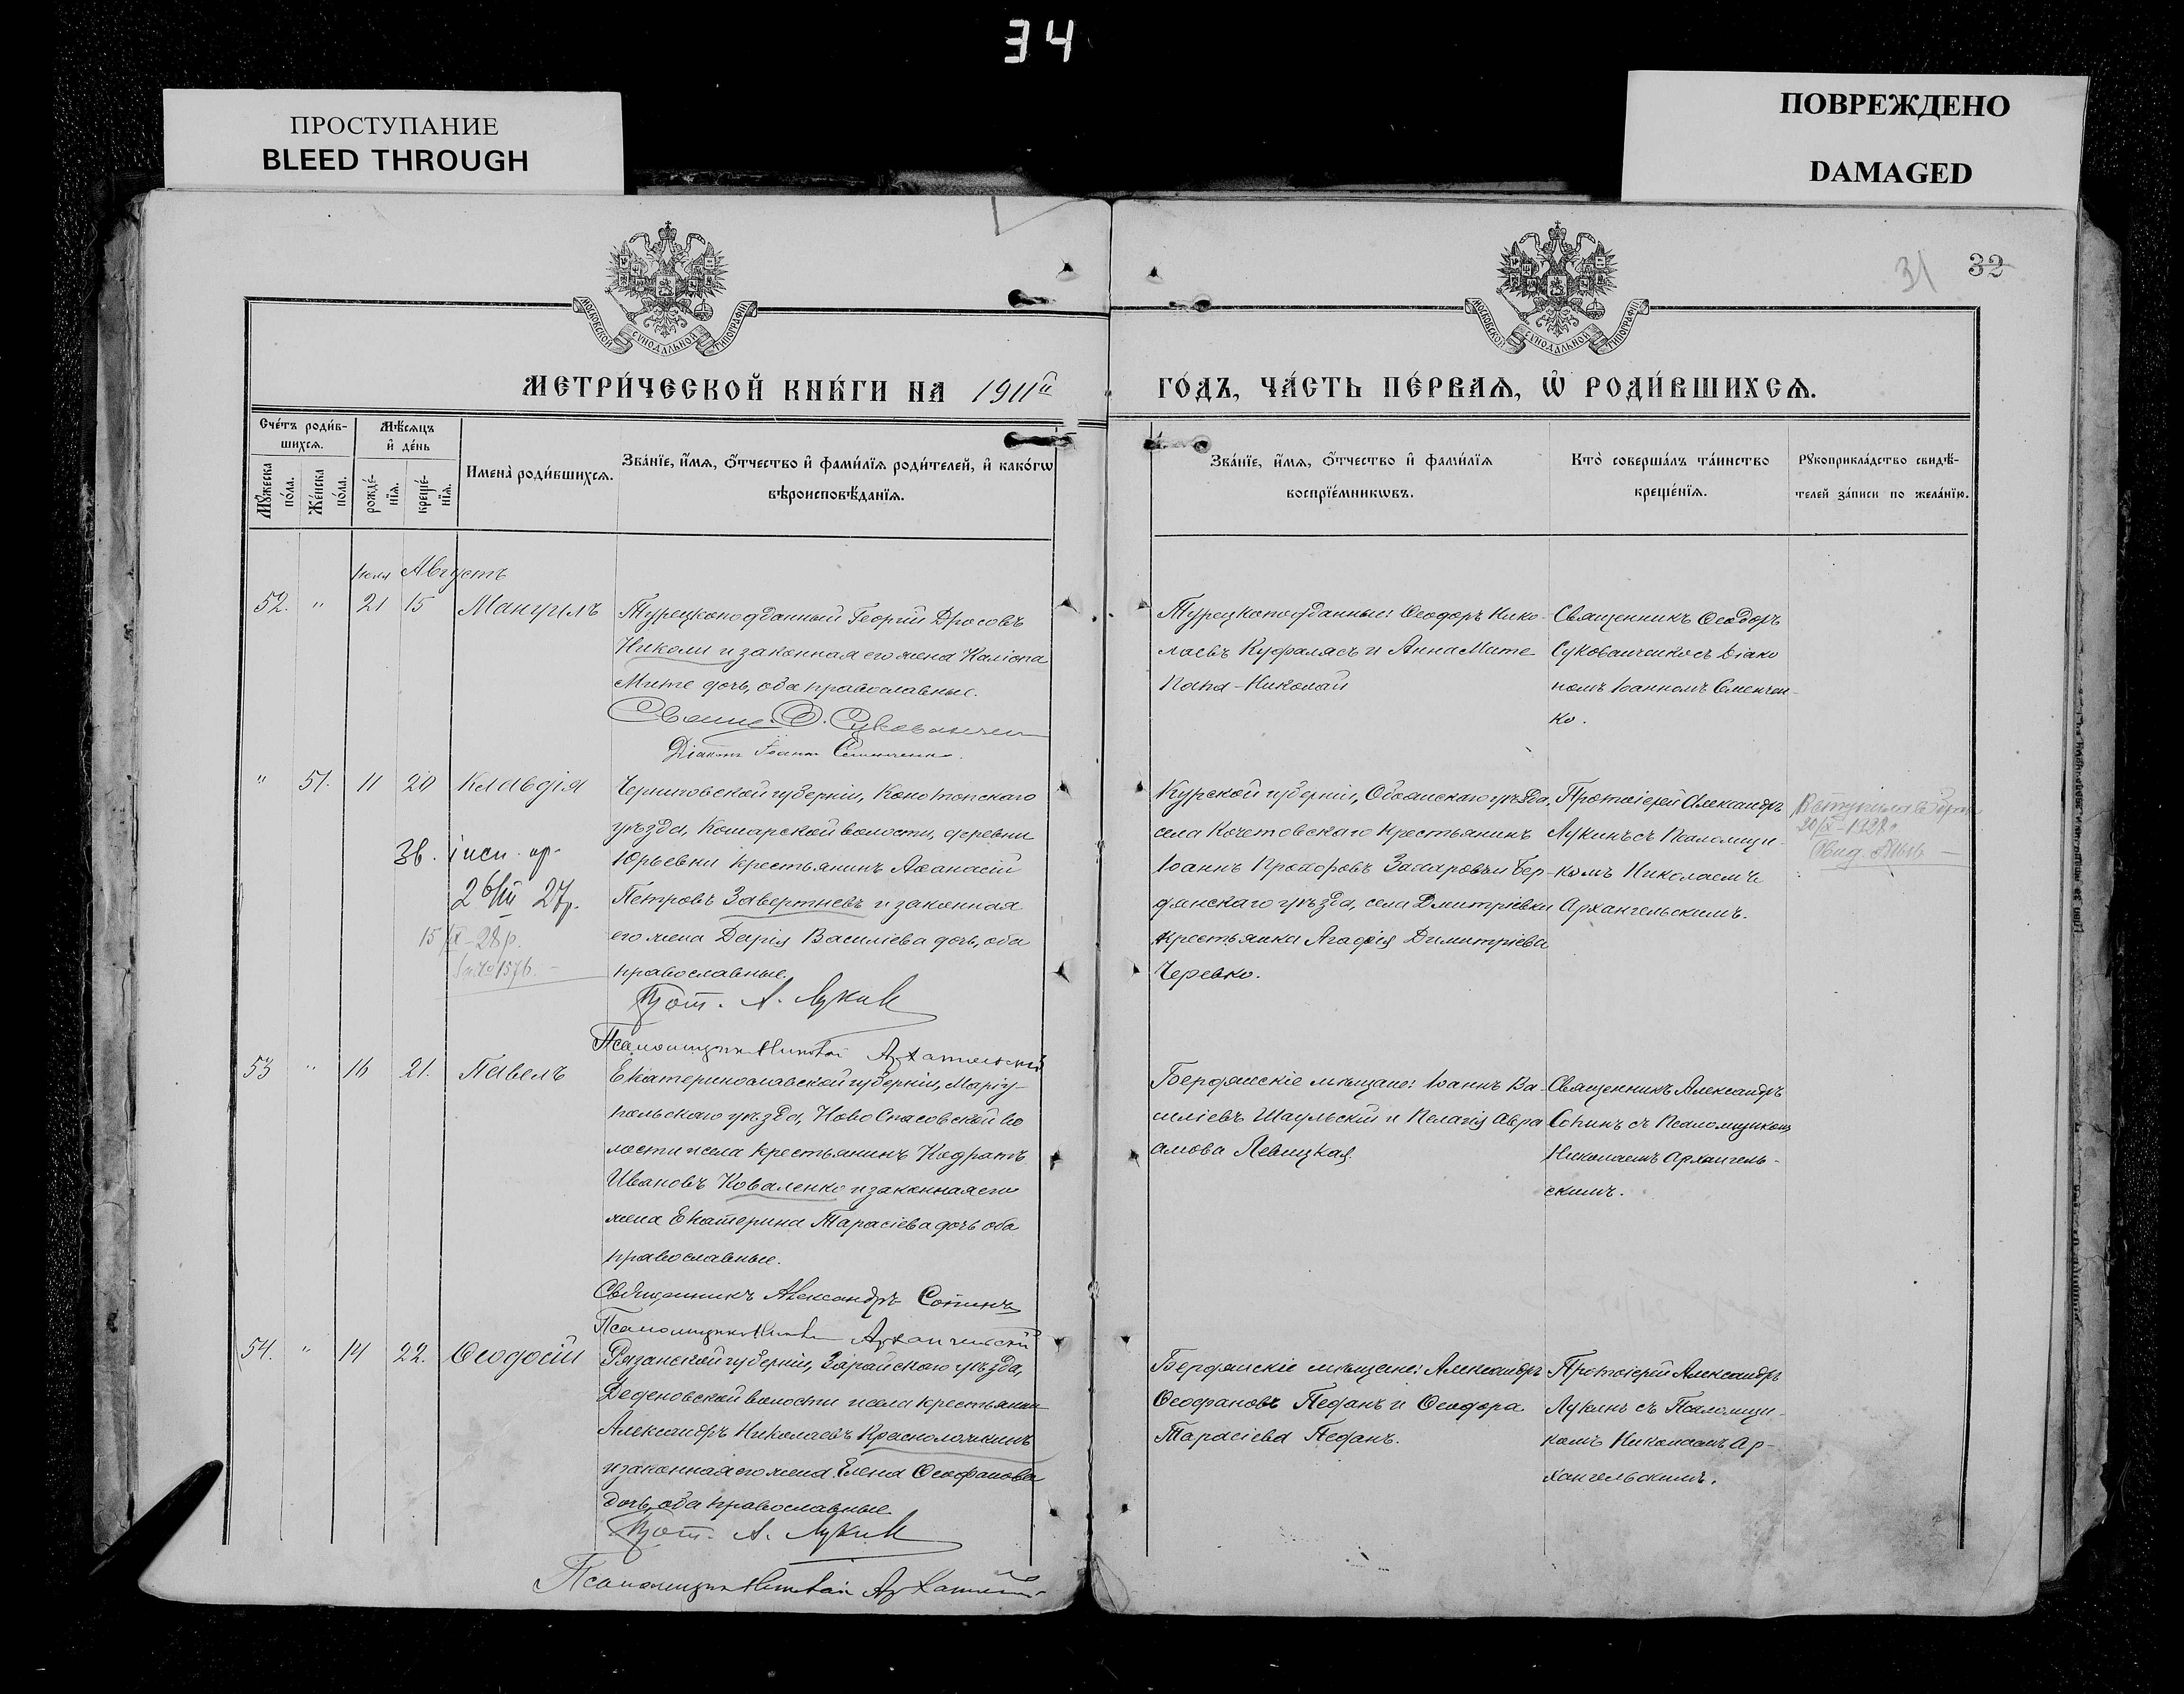 34
ПРОСТУПАНИЕ
BLEED THROUGH
ПОВРЕЖДЕНО
DAMAGED
31 32
МОСКОВСКОЙ СѴНОДАЛЬНОЙ ТИПОГРАФІИ
МОСКОВСКОЙ СѴНОДАЛЬНОЙ ТИПОГРАФІИ
МЕТРИ́ЧЕСКОЙ КНИ́ГИ НА 1911й
ГО́ДЪ, ЧА́СТЬ ПЕ́РВАѦ, Ѡ РОДИ́ВШИХСѦ.
Сче́тъ роди́в-
шихсѧ.
Мꙋ́жеска
по́ла.
Же́нска
по́ла.
Мѣ́сѧцъ
и҆ де́нь
рожде́-
нїѧ.
креще́-
нїѧ.
Имена̀ роди́вшихсѧ.
Зва́нїе, и҆́мѧ, ѻ҆́тчество и҆ фами́лїѧ роди́телей, и҆ како́гѡ
вѣроисповѣ́данїѧ.
Зва́нїе, и҆́мѧ, ѻ҆́тчество и҆ фами́лїѧ
воспрїе́мникѡвъ.
Кто̀ соверша́лъ та́инство
креще́нїѧ.
Рꙋкоприкла́дство свидѣ́-
телей за́писи по жела́нїю.
Іюля Августъ
52. " 21 15 Мануилъ
Турецкоподданный Георгій Дросовъ
Николи и законная его жена Каліопа
Мите дочь, оба православные.
Свящ. Ѳ. Сукованченко
Діаконъ Іоаннъ Семенченко.
Турецкоподданные: Ѳеодоръ Нико-
лаевъ Куфалясъ и Анна Мите
Папа-Николай
Священникъ Ѳеодоръ
Суковаченко съ Діако
номъ Іоанномъ Семенчен-
ко.
" 51. 11 20 Клавдія
Черниговской губерніи, Конотопскаго
уѣзда, Кошарской волости, деревни
Юрьевки крестьянинъ Аѳанасій
Петровъ Завертневъ и законная
его жена Дарія Василіева дочь, оба
православные.
Прот. А. Лукин
Псаломщикъ Николай Архангельскій
26/III 27г.
15/X-28р.
Курской губерніи, Обоянскаго уѣзда,
села Кочетовскаго крестьянинъ
Іоаннъ Прокофовъ Захаровъ и Бер-
дянскаго уѣзда, села Дмитріевки
крестьянка Агафія Димитріева
Черевко.
Протоіерей Александръ
Лукинъ съ Псаломщи-
комъ Николаемъ
Архангельскимъ.
53 " 16 21. Павелъ
Екатеринославской губерніи, Маріу-
польскаго уѣзда, Ново Спасовской во
лости и села крестьянинъ Кодратъ
Ивановъ Коваленко и законная его
жена Екатерина Тарасіева дочь оба
православные.
Священникъ Александръ Сопинъ
Псаломщикъ Николай Архангельскій
Бердянскіе мѣщане: Іоаннъ Ва-
силіевъ Шаульскій и Пелагія Авра
амова Левицкая.
Священникъ Александръ
Сопинъ съ Псаломщикомъ
Николаемъ Архангель-
скимъ.
54. " 14 22. Ѳеодосій
Рязанской губерніи, Зарайскаго уѣзда,
Деденовской волости и села крестьянин
Александръ Николаевъ Красноложкинъ
и законная его жена Елена Ѳеофанова
дочь, оба православные.
Прот. А. Лукин
Псаломщикъ Николай Архангельскій
Бердянскіе мѣщане: Александръ
Ѳеофановъ Педанъ и Ѳеодора
Тарасіева Педанъ.
Протоіерей Александръ
Лукинъ съ Псаломщи-
комъ Николаемъ Ар-
хангельскимъ.